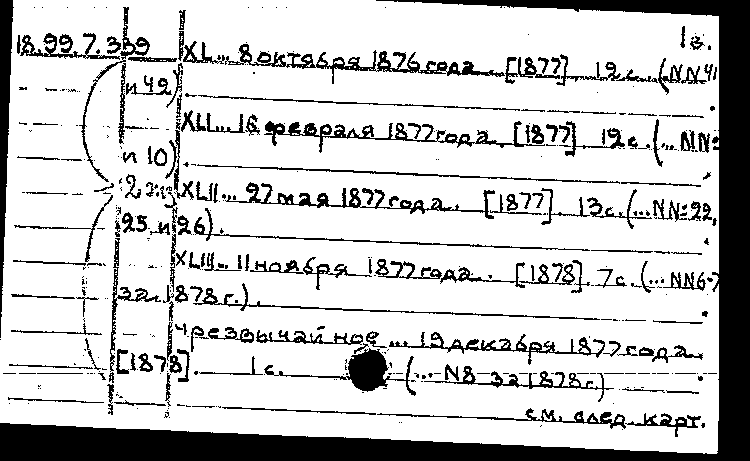 1в.
18.99.7.339 XL... 8 октября 1876 года. [1877] 12 с. (NN 41
и 42).
XLI... 16 февраля 1877 года. [1877] 12 с. (... NN=
и 10).
2 экз. XLII... 27 мая 1877 года. [1877]. 13 с. (...NN=22,
25 и 26).
XLIII... 11 ноября 1877 года. [1878]. 7 с. (... NN6-7
за 1878 г.).
Чрезвычайное ... 19 декабря 1877 года.
[1878]. 1 с. (... N8 за 1878 г.)
см. след. карт.